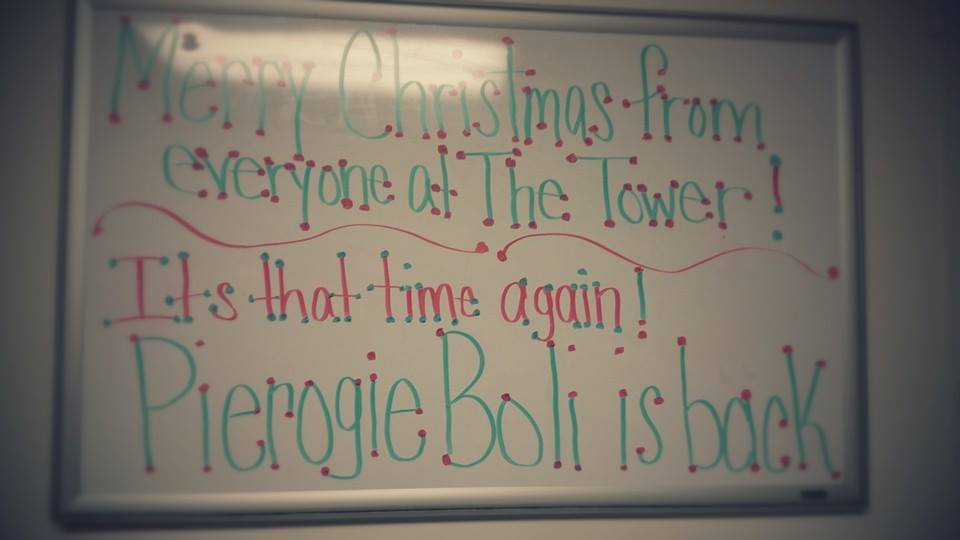 Merry Christmas from
everyone at The Tower!
Its that time again!
Pierogie Boli is back